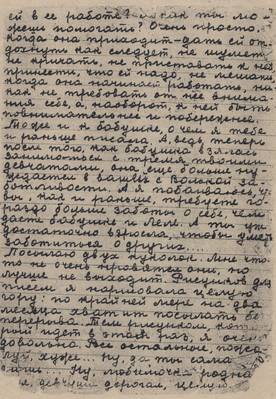 ей в ее работе? а как ты мо-
жешь помогать? Очень просто.
Когда она приходит - дать ей от-
дохнуть как следует, не шуметь,
не кричать, не приставать к ней
принести, что ей надо, не мешать
когда она начинает работать, ни-
как не требовать от нее внима-
ния себе, а, наоборот, к ней быть
повнимательнее и побережнее.
То же и к бабушке, о чем я тебе
и раньше писала. А ведь теперь
после того, как бабушка взялась
заниматься с тремя твоими
девчатами, она еще больше ну-
ждается в вашей с Волькой за-
ботливости. А я побаиваюсь, что
вы, как и раньше, требуете го-
раздо больше заботы о себе, чем
даете бабушке и Леле. А ты уж
достаточно взрослая, чтобы уметь
заботиться о других...
Посылаю двух куколок. Мне что-
то не очень нравятся они, но
лучше не выходит. Рисунков для
писем я нарисовала целую
гору: по крайней мере на два
месяца хватит посылать без
перерыва. Тем рисунком, кот-
рый идет в этот раз, я очень
довольна. Все остальные пожа-
луй, хуже... Ну, да ты сама
Ну, любимочка родна
я, девчушка дорогая, целую